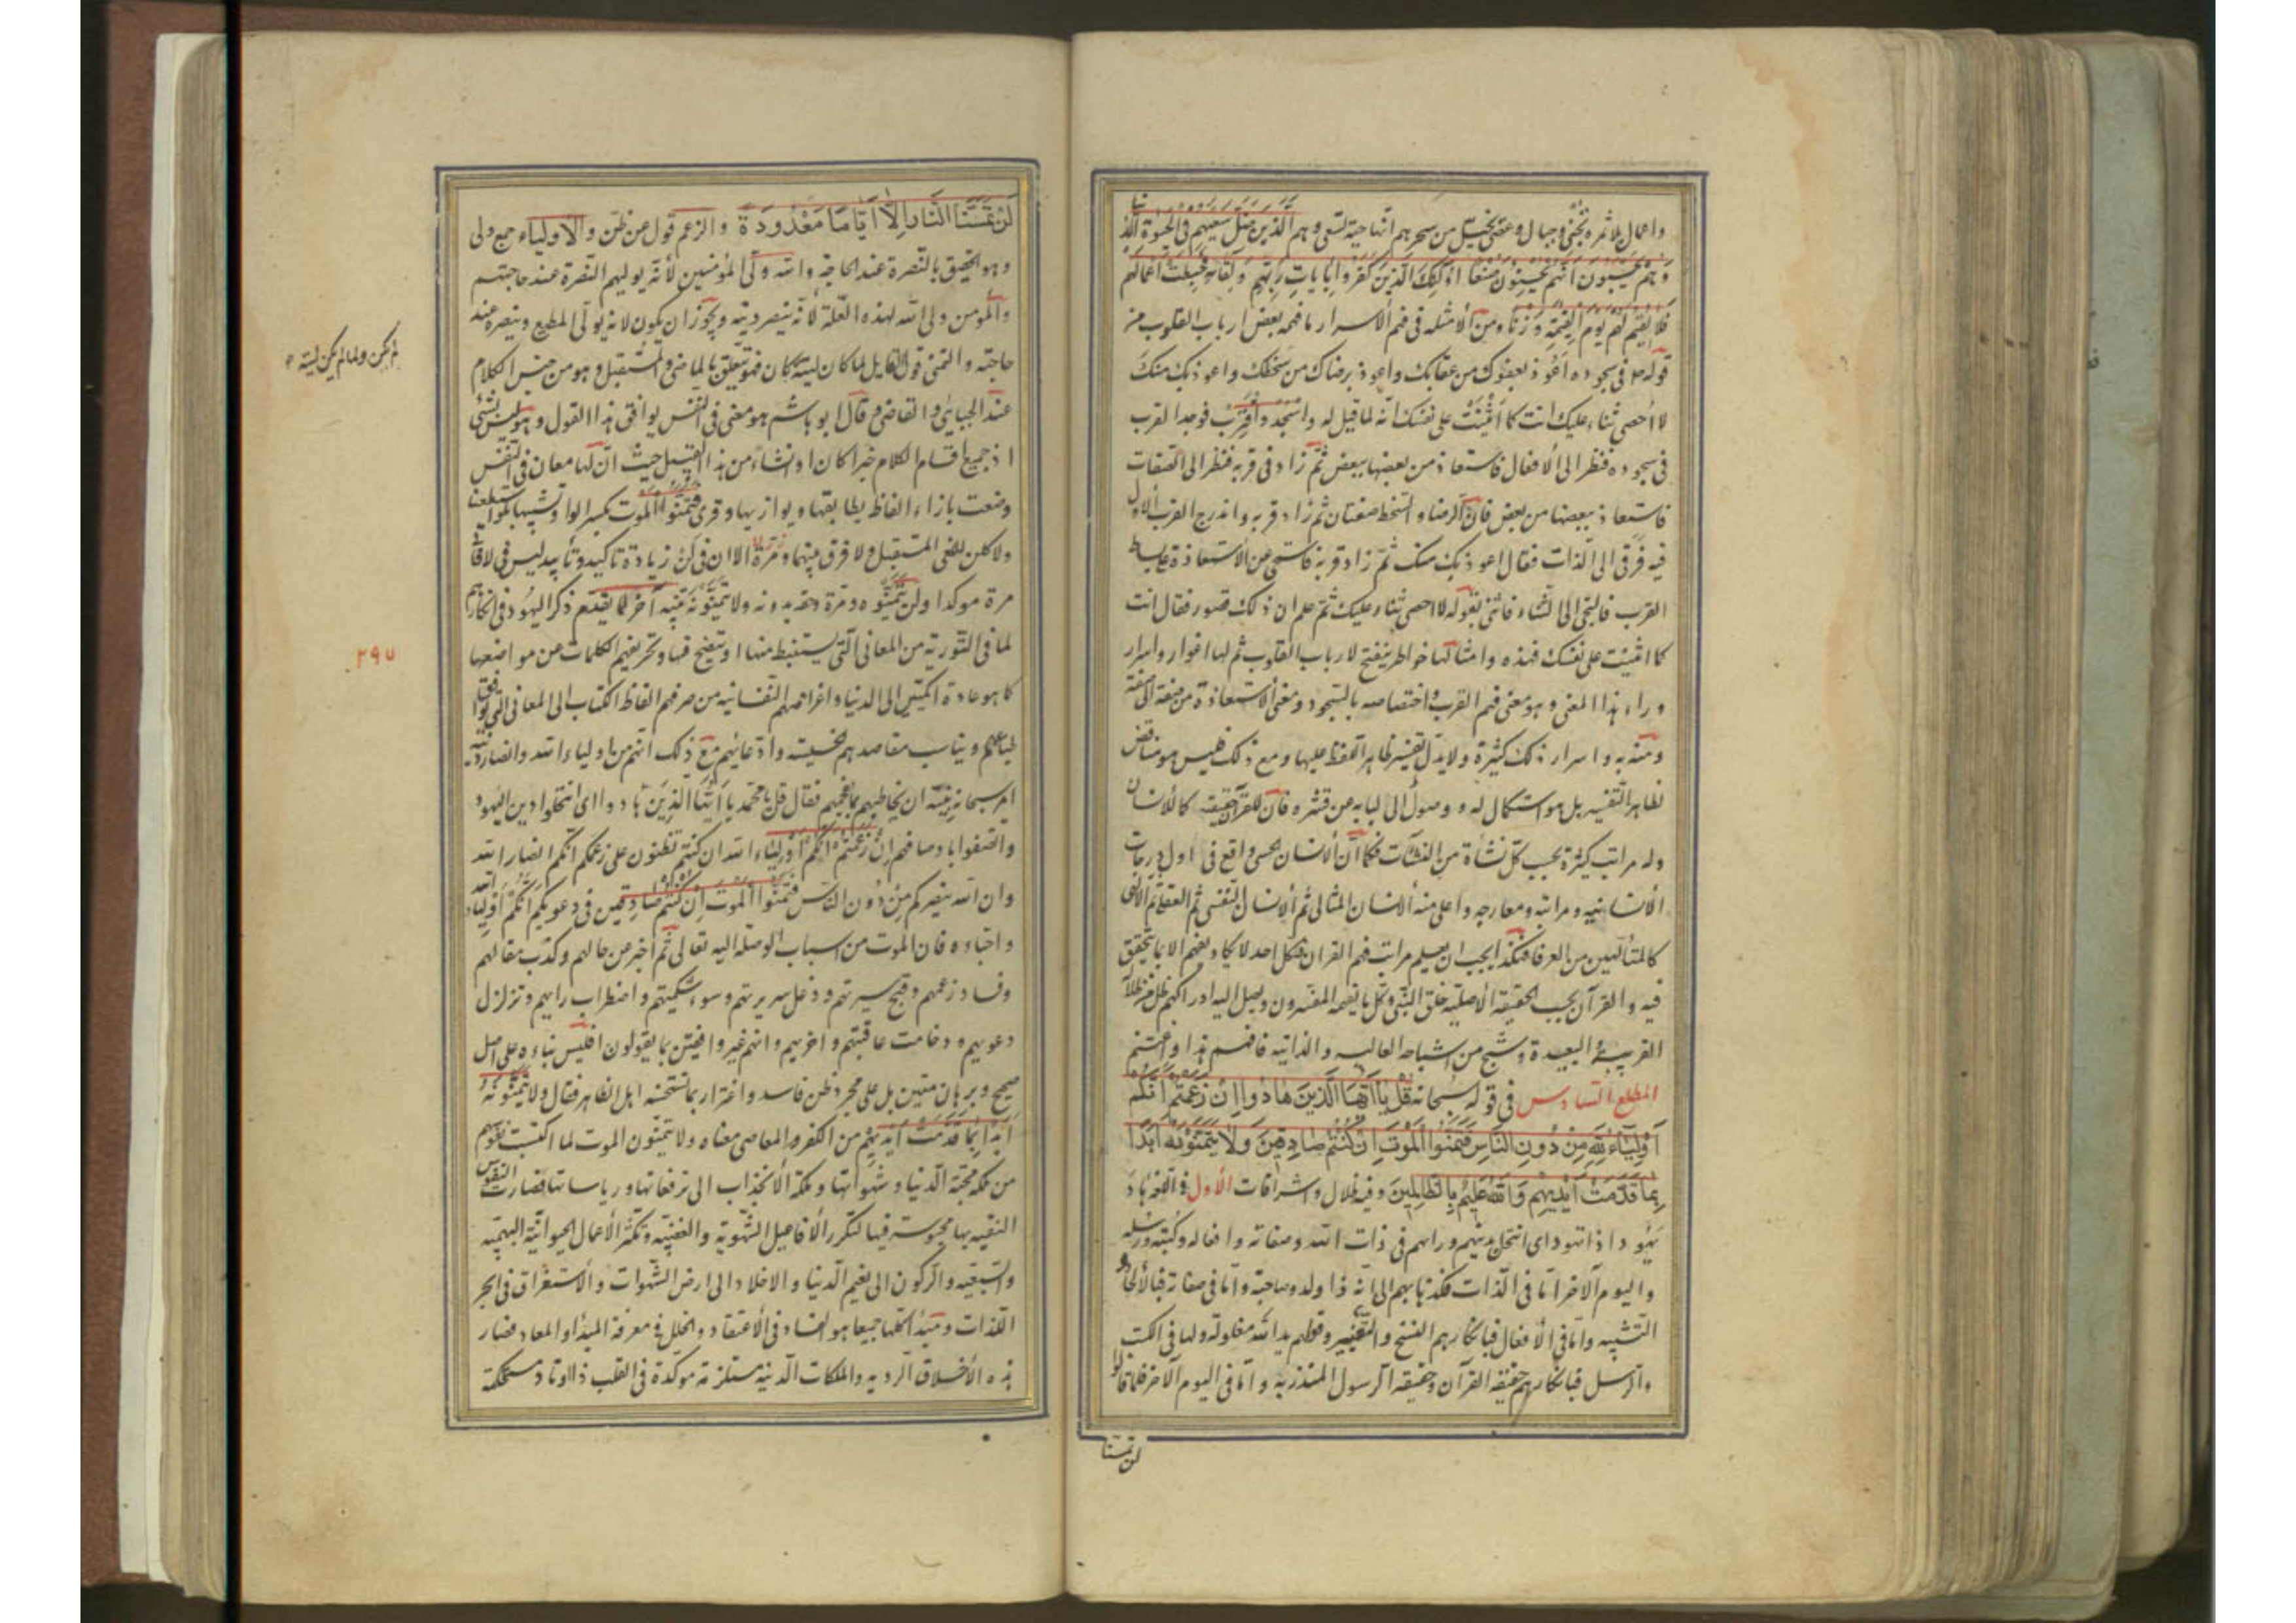 واعمال بلا ثمره تجنى وحبال وعصى يخيل من سحرهم انها حية تسعى وهم الذين ضل سعيهم فى الحيوة الدنيا
وهم يحسبون انهم يحسنون صنعا اولئك الذين كفروا بايات ربهم ولقائه فحبطت اعمالهم
فلا نقيم لهم يوم القيمة وزنا ومن الأمثله فى فهم الاسرار ما فهمه بعض ارباب القلوب من
قوله ص فى سجوده اعوذ بعفوك من عقابك واعوذ برضاك من سخطك واعوذ بك منك
لا احصى ثناء عليك انت كما اثنيت على نفسك انه لما قيل له واسجد واقترب فوجد القرب
فى سجوده فنظر الى الأفعال فاستعاذ من بعضها ببعض ثم زاد فى قربه فنظر الى الصفات
فاستعاذ ببعضها من بعض فان الرضا والسخط صفتان ثم زاد قربه واندرج القرب الاول
فيه فرقى الى الذات فقال اعوذ بك منك ثم زاد قربه فاستحى عن الاستعاذة على بساط
القرب فالتجى الى الثناء فاثنى بقوله لا احصى ثناء عليك ثم علم ان ذلك قصور فقال انت
كما اثنيت على نفسك فهذه وامثالها خواطر ينفتح لارباب القلوب ثم لها اغوار واسرار
وراء هذا المعنى وهو معنى فهم القرب واختصاصه بالسجود ومعنى الاستعاذة من صفة الى صفة
ومنه به واسرار ذلك كثيرة ولا يدل تفسير ظاهر اللفظ عليها ومع ذلك فليس هو مناقض
لظاهر التفسير بل هو استكمال له ووصول الى لبابه من قشره فان للقرآن حقيقه كالانسان
وله مراتب كثيرة بحسب كل نشأة من النشآت فكما أن الانسان الحسى واقع فى اول درجات
الأنسانيه ومراتبه ومعارجه واعلى منه الانسان المثالى ثم الانسان النفسى ثم العقلى ثم الالهى
كالمتألهين من العرفا فهكذا يجب ان يعلم مراتب فهم القران فكل احد لا يكاد يفهم الا بما يتحقق
فيه والقرآن بحسب الحقيقة الأصليه خلق النبى وكل ما يفهمه المفسرون ويصل اليه ادراكهم ظل من ظلاله
القريبة والبعيدة وشبح من اشباحه العاليه والدانيه فافهم هذا واغتنم
المطلع السادس فى قوله سبحانه قل يا ايها الذين هادوا ان زعمتم انكم
اولياء لله من دون الناس فتمنوا الموت ان كنتم صادقين ولا يتمنونه ابدا
بما قدمت ايديهم والله عليم بالظالمين وفيه ظلال واشراقات الأول فى اللغه هاد
يهود اذا تهود اى انتحل بدينهم ورايهم فى ذات الله وصفاته وافعاله وكتبه ورسله
واليوم الآخر اما فى الذات فكذهابهم الى انه ذا ولد وصاحبة واما فى صفاته فبالألحاد و
التشبيه واما فى الأفعال فبانكارهم النسخ والتغيير وقولهم يد الله مغلولة ولها فى الكتب
والرسل فبانكارهم حقيقه القرآن وحقيقه الرسول المنذر به واما فى اليوم الآخر فلما قالوا
لن تمسنا
لن تمسنا النار الا اياما معدودة والزعم قول عن ظن والأولياء جمع ولى
وهو الحقيق بالنصرة عند الحاجة والله ولى المؤمنين لأنه يوليهم النصرة عند حاجتهم
والمؤمن ولى الله لهذه العلة لأنه ينصر دينه ويجوز ان يكون لانه يولى المطيع وينصره عند
حاجته والتمنى قول القايل لما كان ليته كان فهو يتعلق بالماضى والمستقبل وهو من جنس الكلام
عند الجبائى والقاضى وقال ابو هاشم هو معنى فى النفس يوافق هذا القول وهو ليس بشئ
اذ جميع اقسام الكلام خبرا كان او انشاء من هذا القبيل حيث ان لها معان فى النفس
وضعت بازاء الفاظ يطابقها ويوازيها وقرى فتمنوا الموت بكسر الواو تشبيها بلو استطعنا
ولا كلن للنفى المستقبل ولا فرق بينهما الا ان فى لن زيادة تاكيد وتأبيد ليس فى لا فاتى
مرة موكدا ولن يتمنوه ومرة بدونه ولا يتمنونه تنبيه آخر لما يقدم ذكر اليهود فى انكارهم
لما فى التورية من المعانى التى يستنبط منها او يتضح فيها وتحريفهم الكلمات عن مواضعها
كما هو عادة المائلين الى الدنيا واغراضهم النفسانيه من صرفهم الفاظ الكتاب الى المعانى التى يوافق
طباعهم ويناسب مقاصدهم الخسيسة وادعائهم مع ذلك انهم من اولياء الله وانصار دينه
امر سبحانه نبيه ان يخاطبهم بما يفحمهم فقال قل يا محمد يا ايها الذين هادوا اى انتحلوا دين اليهود
واتصفوا باوصافهم ان زعمتم انكم اولياء الله ان كنتم تظنون على زعمكم انكم انصار الله
وان الله ينصركم من دون الناس فتمنوا الموت ان كنتم صادقين فى دعويكم انكم اولياء الله
واحباءه فان الموت من اسباب الوصلة اليه تعالى ثم اخبر عن حالهم وكذب مقالهم
وفساد زعمهم وقبح سيرتهم ودغل سريرتهم وسوء شكيمتهم واضطراب رايهم وتزلزل
دعويهم ووخامت عاقبتهم واخريهم وانهم غير واثقين بما يقولون اذ ليس بناءه على اصل
صحيح وبرهان متين بل على مجرد ظن فاسد واغترار بما تستحسنه اهل الظاهر فقال ولا يتمنونه
ابدا بما قدمت ايديهم من الكفر والمعاصى معناه ولا يتمنون الموت لما اكتسبت نفوسهم
من ملكة محبة الدنيا وشهواتها وملكة الأنجذاب الى ترفعاتها ورياساتها فصارت النفوس
الشقيه بها محبوسة فيها لتكرر الأفاعيل الشهوية والغضبية وتكثر الأعمال الحيوانية البهيميه
والسبعيه والركون الى نعيم الدنيا والاخلاد الى ارض الشهوات والأستغراق فى ابحر
اللذات ومبدأ كلها جميعا هو الفساد فى الأعتقاد والخلل فى معرفة المبدأ والمعاد فصار
هذه الأخلاق الرديه والملكات الدنية مستلزمة موكدة فى القلب ذا اوتاد مستحكمة
لم يكن ولما لم يكن ليته
٢٩٧